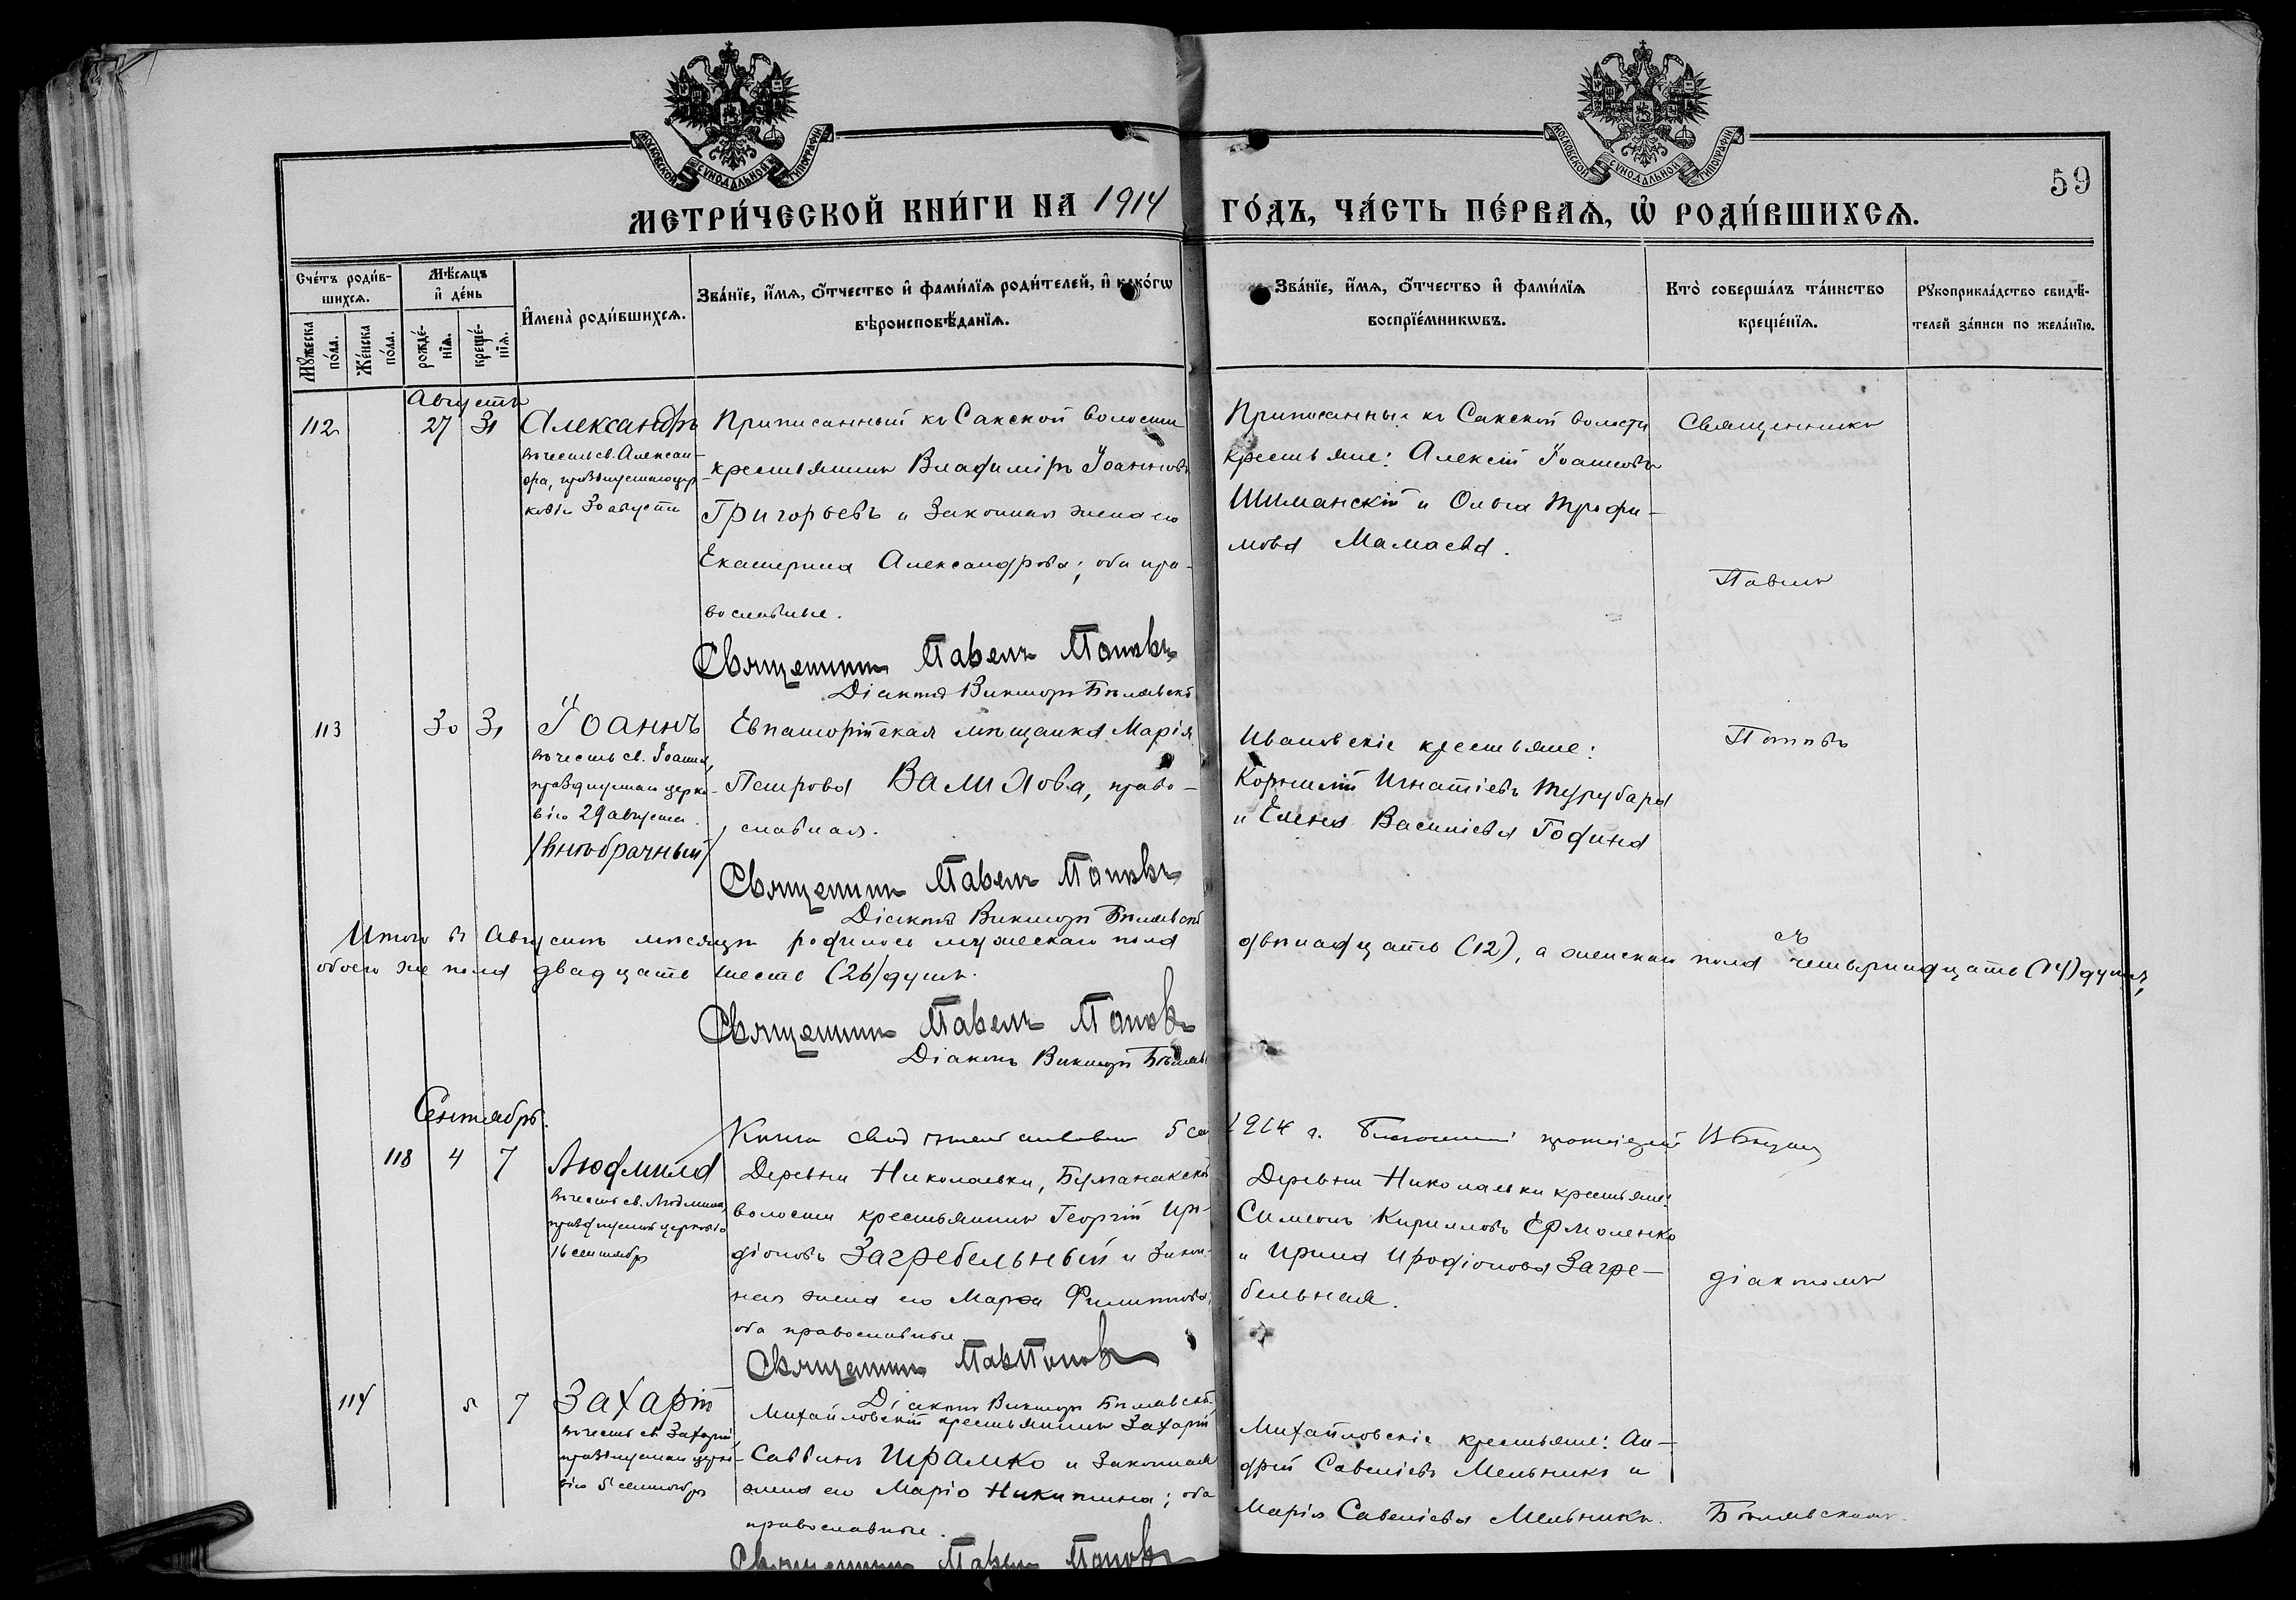 МОСКОВСКОЙ СѴНОДАЛЬНОЙ ТИПОГРАФІИ
МОСКОВСКОЙ СѴНОДАЛЬНОЙ ТИПОГРАФІИ
59
МЕТРИ́ЧЕСКОЙ КНИ́ГИ НА 1914 ГО́ДЪ, ЧА́СТЬ ПЕ́РВАѦ, Ѡ РОДИ́ВШИХСѦ.
Сче́тъ роди́в-
шихсѧ.
Мꙋ́жеска
по́ла.
Же́нска
по́ла.
Мѣ́сѧцъ
и де́нь
рожде́-
нїѧ.
креще́-
нїѧ.
Имена̀ роди́вшихсѧ.
Зва́нїе, и́мѧ, ѻ́тчество и фами́лїѧ роди́телей, и како́гѡ
вѣроисповѣ́данїѧ.
Зва́нїе, и́мѧ, ѻ́тчество и фами́лїѧ
воспрїе́мникѡвъ.
Кто̀ соверша́лъ та́инство
креще́нїѧ.
Рꙋкоприкла́дство свидѣ́-
телей за́писи по жела́нїю.
Августъ
112
27 31
Александръ
въ честь св. Алексан-
дра, празднуемаго цер-
ковью 30 августа
Приписанный къ Сакской волости
крестьянинъ Владиміръ Іоанновъ
Григорьевъ и законная жена его
Екатерина Александрова; оба пра-
вославные.
Священникъ Павелъ Поповъ
Діаконъ Викторъ Бѣлявскій
Приписанные къ Сакской волости
крестьяне: Алексій Іоанновъ
Шиманскій и Ольга Трофи-
мова Мамаева.
Священникъ
Павелъ
Поповъ
113
30 31
Іоаннъ
въ честь св. Іоанна,
празднуемаго церко-
вію 29 августа.
/внѣбрачный/
Евпаторійская мѣщанка Марія
Петрова Вамилова, право-
славная.
Священникъ Павелъ Поповъ
Діаконъ Викторъ Бѣлявскій
Ивановскіе крестьяне:
Корнилій Игнатіевъ Турубара
и Елена Василіева Година
Итого въ Августѣ мѣсяцѣ родилось мужескаго пола двѣнадцать (12), а женскаго пола четырнадцать (14) душъ,
обоего же пола двадцать шесть (26) душъ.
Священникъ Павелъ Поповъ
Діаконъ Викторъ Бѣлявс
Сентябрь.
Книга 5 1914 г.
118
4 7
Людмила
въ честь св. Людмилы,
празднуемой церковью
16 сентября
Деревни Николаевки, Бузманакской
волости крестьянинъ Георгій Иро-
діоновъ Загребельный и закон-
ная жена его Марѳа Филиппова,
оба православные
Священникъ Пав Поповъ
Діаконъ Викторъ Бѣлявскій
Деревни Николаевки крестьяне:
Симеонъ Кирилловъ Ермоленко
и Ирина Иродіонова Загре-
бельная.
діакономъ
114
5 7
Захарій
въ честь св. Захаріи,
празднуемаго церко-
вію 5 сентября
Михайловскій крестьянинъ Захарій
Саввинъ Шрамко и законная
жена его Марія Никитина; оба
православные.
Священникъ Павелъ Поповъ
Михайловскіе крестьяне: Ан-
дрей Савеліевъ Мельникъ и
Марія Савеліева Мельникъ.
Бѣлявскимъ.